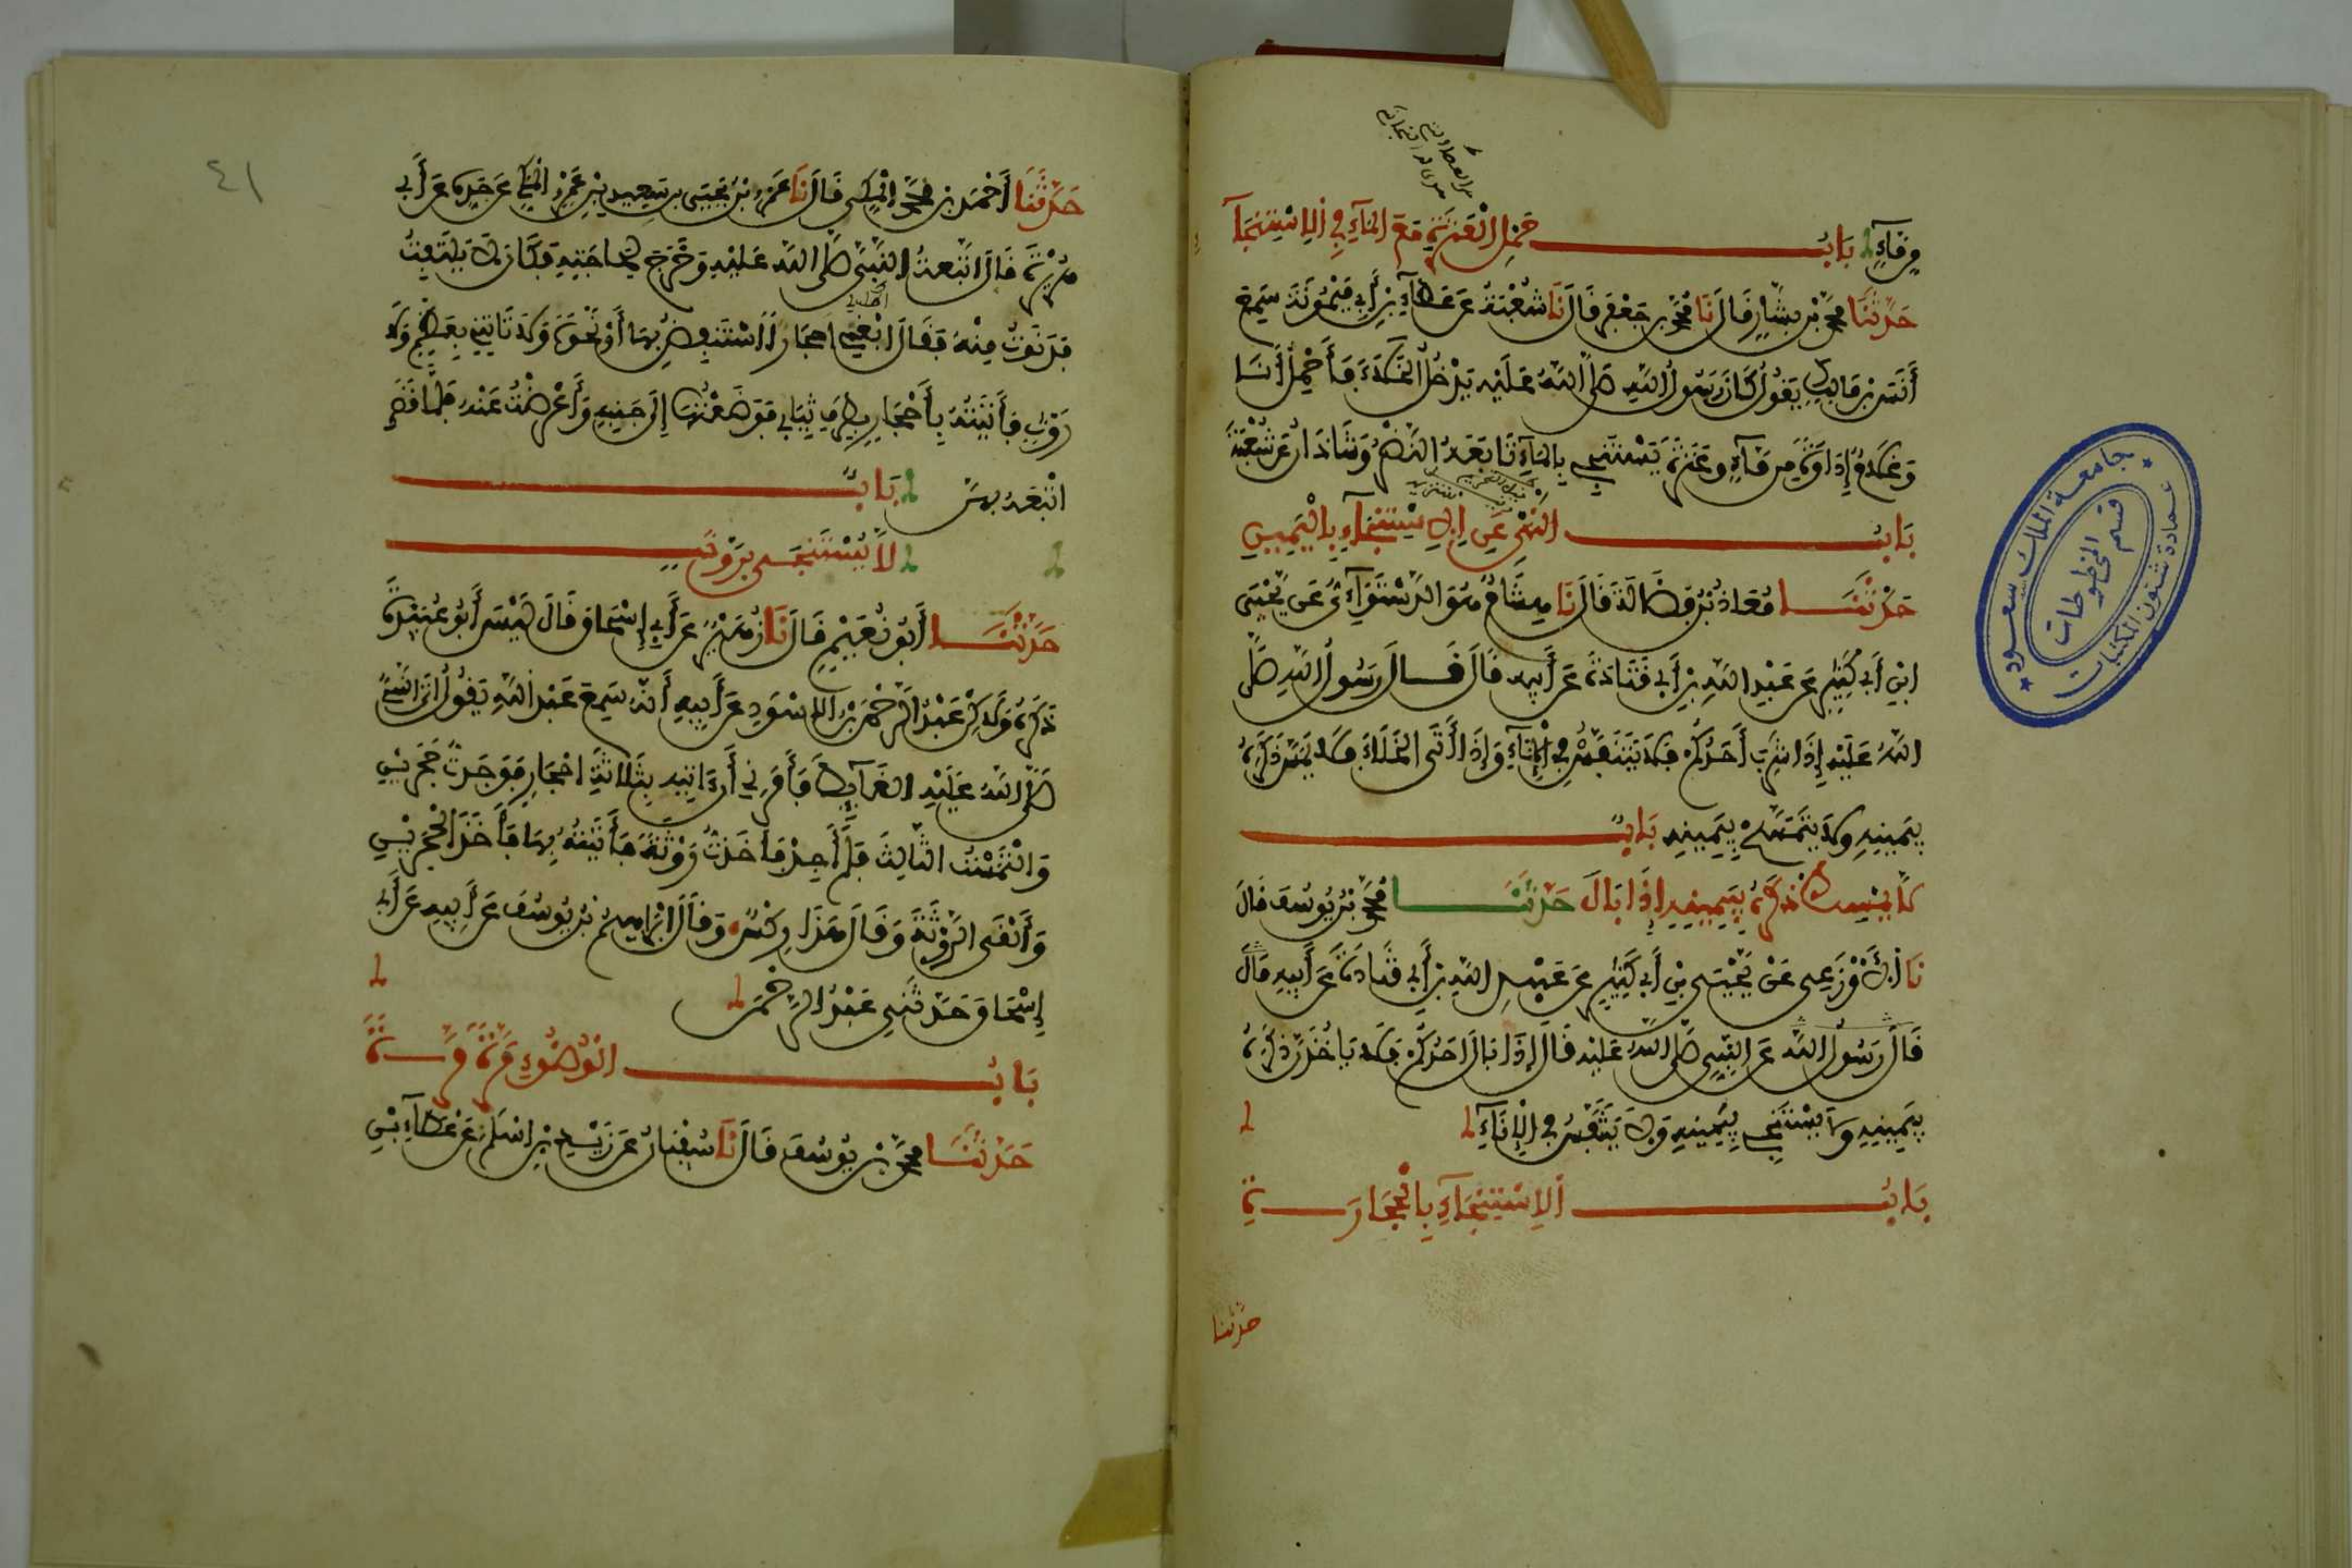 من ماءٍ بَابُ حَمْلِ الْعَنَزَةِ مَعَ الْمَاءِ فِي الِاسْتِنْجَاءِ
حَدَّثَنَا مُحَمَّدُ بْنُ بَشَّارٍ قَالَ نَا مُحَمَّدُ بْنُ جَعْفَرٍ قَالَ نَا شُعْبَةُ عَنْ عَطَاءِ بْنِ أَبِي مَيْمُونَةَ سَمِعَ
أَنَسَ بْنَ مَالِكٍ يَقُولُ كَانَ رَسُولُ اللَّهِ صَلَّى اللَّهُ عَلَيْهِ يَدْخُلُ الْخَلَاءَ فَأَحْمِلُ أَنَا
وَغُلَامٌ إِدَاوَةً مِنْ مَاءٍ وَعَنَزَةً يَسْتَنْجِي بِالْمَاءِ تَابَعَهُ النَّضْرُ وَشَاذَانُ عَنْ شُعْبَةَ
بَابُ النَّهْيِ عَنِ الِاسْتِنْجَاءِ بِالْيَمِينِ
حَدَّثَنَا مُعَاذُ بْنُ فَضَالَةَ قَالَ نَا هِشَامٌ هُوَ الدَّسْتَوَائِيُّ عَنْ يَحْيَى
ابْنِ أَبِي كَثِيرٍ عَنْ عَبْدِ اللَّهِ بْنِ أَبِي قَتَادَةَ عَنْ أَبِيهِ قَالَ قَالَ رَسُولُ اللَّهِ صَلَّى
اللَّهُ عَلَيْهِ إِذَا شَرِبَ أَحَدُكُمْ فَلَا يَتَنَفَّسْ فِي الْإِنَاءِ وَإِذَا أَتَى الْخَلَاءَ فَلَا يَمَسَّ ذَكَرَهُ
بِيَمِينِهِ وَلَا يَتَمَسَّحْ بِيَمِينِهِ بَابٌ
لَا يُمْسِكُ ذَكَرَهُ بِيَمِينِهِ إِذَا بَالَ حَدَّثَنَا مُحَمَّدُ بْنُ يُوسُفَ قَالَ
نَا الْأَوْزَعِي عَنْ يَحْيَى بْنِ أَبِي كَثِيرٍ عَنْ عَبْدِ اللَّهِ بْنِ أَبِي قَتَادَةَ عَنْ أَبِيهِ قَالَ
قَالَ رَسُولُ اللَّهِ عَنِ النَّبِيِّ صَلَّى اللَّهُ عَلَيْهِ قَالَ إِذَا بَالَ أَحَدُكُمْ فَلَا يَأْخُذَنَّ ذَكَرَهُ
بِيَمِينِهِ وَلَا يَسْتَنْجِي بِيَمِينِهِ وَلَا يَتَنَفَّسْ فِي الْإِنَاءِ
بَابُ الِاسْتِنْجَاءِ بِالْحِجَارَةِ
حدثنا
جامعة الملك سعود
عمادة شئون المكتبات
قسم المخطوطات
٤١
حَدَّثَنَا أَحْمَدُ بْنُ مُحَمَّدٍ الْمَكِّي قَالَ نَا عَمْرُو بْنُ يَحْيَى بْنِ سَعِيدِ بْنِ عَمْرٍو الْمَكِّي عَنْ جَدِّهِ عَنْ أَبِي
هُرَيْرَةَ قَالَ اتَّبَعْتُ النَّبِيَّ صَلَّى اللَّهُ عَلَيْهِ وَخَرَجَ لِحَاجَتِهِ فَكَانَ لَا يَلْتَفِتُ
فَدَنَوْتُ مِنْهُ فَقَالَ ابْغِنِي أَحْجَارًا أَسْتَنْفِضُ بِهَا أَوْ نَحْوَهُ وَلَا تَاتِنِي بِعَظْمٍ وَلَا
رَوْثٍ فَأَتَيْتُهُ بِأَحْجَارٍ بِطَرَفِ ثِيَابِي فَوَضَعْتُهَا إِلَى جَنْبِهِ وَأَعْرَضْتُ عَنْهُ فَلَمَّا قَضَى
أَتْبَعَهُ بِهِنَّ بَابٌ
لَا يُسْتَنْجَى بِرَوْثٍ
حَدَّثَنَا أَبُو نُعَيْمٍ قَالَ نَا زُهَيْرٌ عَنْ أَبِي إِسْحَاقَ قَالَ لَيْسَ أَبُو عُبَيْدَةَ
ذَكَرَهُ وَلَكِنْ عَبْدُ الرَّحْمَنِ بْنُ الْأَسْوَدِ عَنْ أَبِيهِ أَنَّهُ سَمِعَ عَبْدَ اللَّهِ يَقُولُ أَتَى النَّبِيُّ
صَلَّى اللَّهُ عَلَيْهِ الْغَائِطَ فَأَمَرَنِي أَنْ آتِيَهِ بِثَلَاثَةِ أَحْجَارٍ فَوَجَدْتُ حَجَرَيْنِ
وَالْتَمَسْتُ الثَّالِثَ فَلَمْ أَجِدْ فَأَخَذْتُ رَوْثَةً فَأَتَيْتُهُ بِهَا فَأَخَذَ الْحَجَرَيْنِ
وَأَلْقَى الرَّوْثَةَ وَقَالَ هَذَا رِكْسٌ وَقَالَ إِبْرَاهِيمُ بْنُ يُوسُفَ عَنْ أَبِيهِ عَنْ أَبِي
إِسْحَاقَ حَدَّثَنِي عَبْدُ الرَّحْمَنِ
بَابُ الْوُضُوءِ مَرَّةً مَرَّةً
حَدَّثَنَا مُحَمَّدُ بْنُ يُوسُفَ قَالَ نَا سُفْيَانُ عَنْ زَيْدِ بْنِ أَسْلَمَ عَنْ عَطَاءِ بْنِ